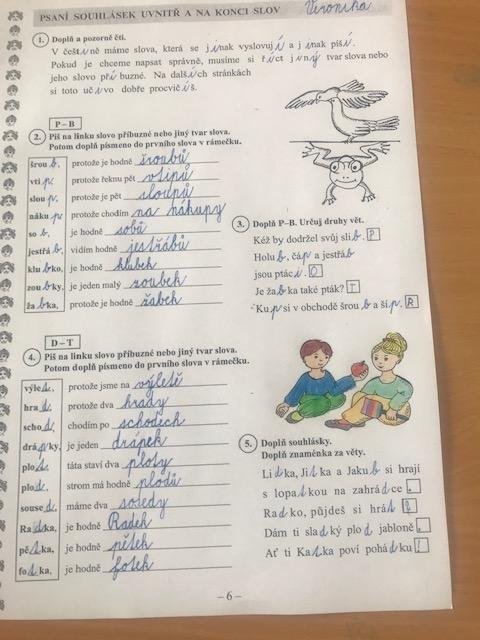 PSANÍ SOUHLÁSEK UVNITŘ A NA KONCI SLOV Veronika
1. Doplň a pozorně čti.
V češtině máme slova, která se jinak vyslovují a jinak píší.
Pokud je chceme napsat správně, musíme si říct jiný tvar slova
nebo jeho slovo příbuzné. Na dalších stránkách
si toto učivo dobře procvičíš.
P – B
2. Piš na linku slovo příbuzné nebo jiný tvar slova.
Potom doplň písmeno do prvního slova v rámečku.
šroub, protože je hodně šroubů
vtip, protože řeknu pět vtipů
sloup, protože je pět sloupů
nákup, protože chodím na nákupy
sob, je hodně sobů
jestřáb, vidím hodně jestřábů
klubko, je hodně klubek
zoubky, je jeden malý zoubek
žabka, protože je hodně žabek
3. Doplň P–B. Určuj druhy vět.
Kéž by dodržel svůj slib. P
Holub, čáp a jestřáb
jsou ptáci. O
Je žabka také pták? T
Kup si v obchodě šroub a šíp. R
D – T
4. Piš na linku slovo příbuzné nebo jiný tvar slova.
Potom doplň písmeno do prvního slova v rámečku.
výlet, protože jsme na výletě
hrad, protože dva hrady
schod, chodím po schodech
drápky, je jeden drápek
plot, táta staví dva ploty
plod, strom má hodně plodů
soused, máme dva sousedy
Radka, je hodně Radek
pětka, je hodně pětek
fotka, je hodně fotek
5. Doplň souhlásky.
Doplň znaménka za věty.
Lidka, Jitka a Jakub si hrají
s lopatkou na zahrádce .
Radko, půjdeš si hrát ?
Dám ti sladký plod jabloně .
Ať ti Katka poví pohádku !
– 6 –